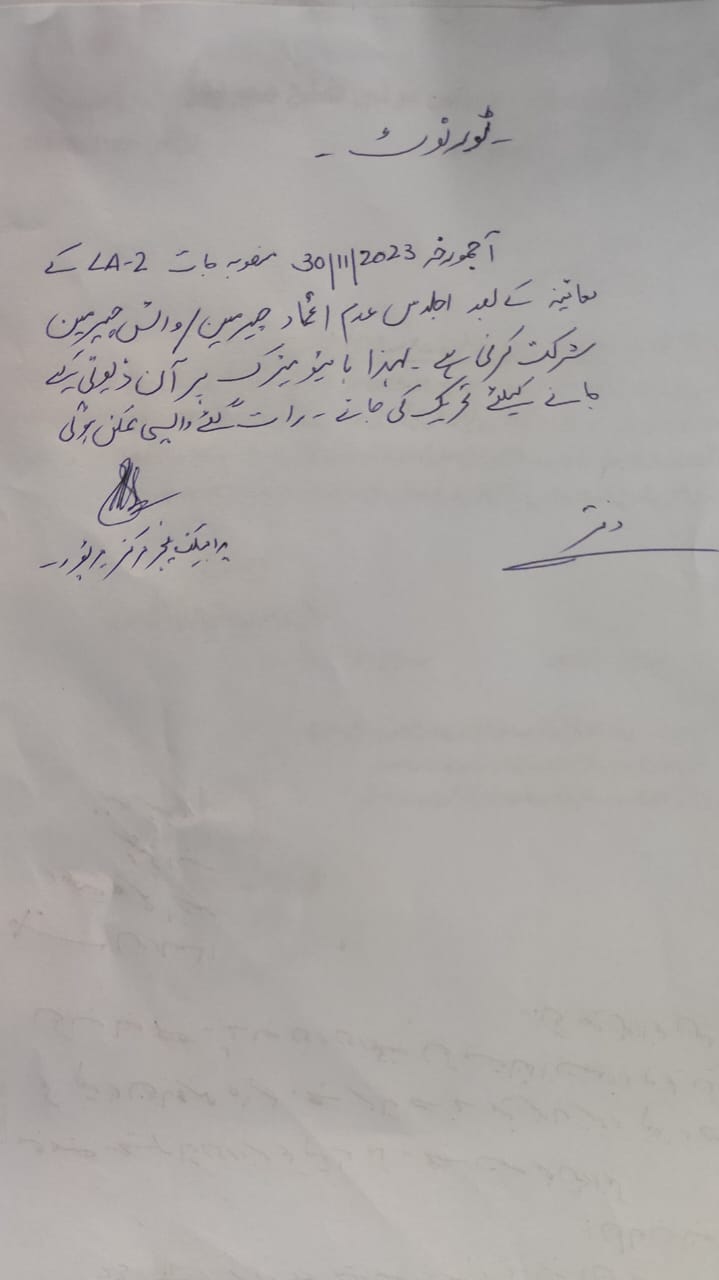 ۔ ٹور نوٹ ۔
آجمورخہ 30/11/2023 منصوبہ جات LA-2 کے
معائینہ کے بعد اجلاس عدم اعتماد چیرمین/وائس چیرمین
شرکت کرنی ہے ۔ لہذا بائیومیٹرک پر آن ڈیوٹی کیے
جانے کیلئے تحریک کی جائے ۔ رات گئے واپسی ممکن ہوگی
پراجیکٹ منیجر مرکز میرپور۔
دفتر